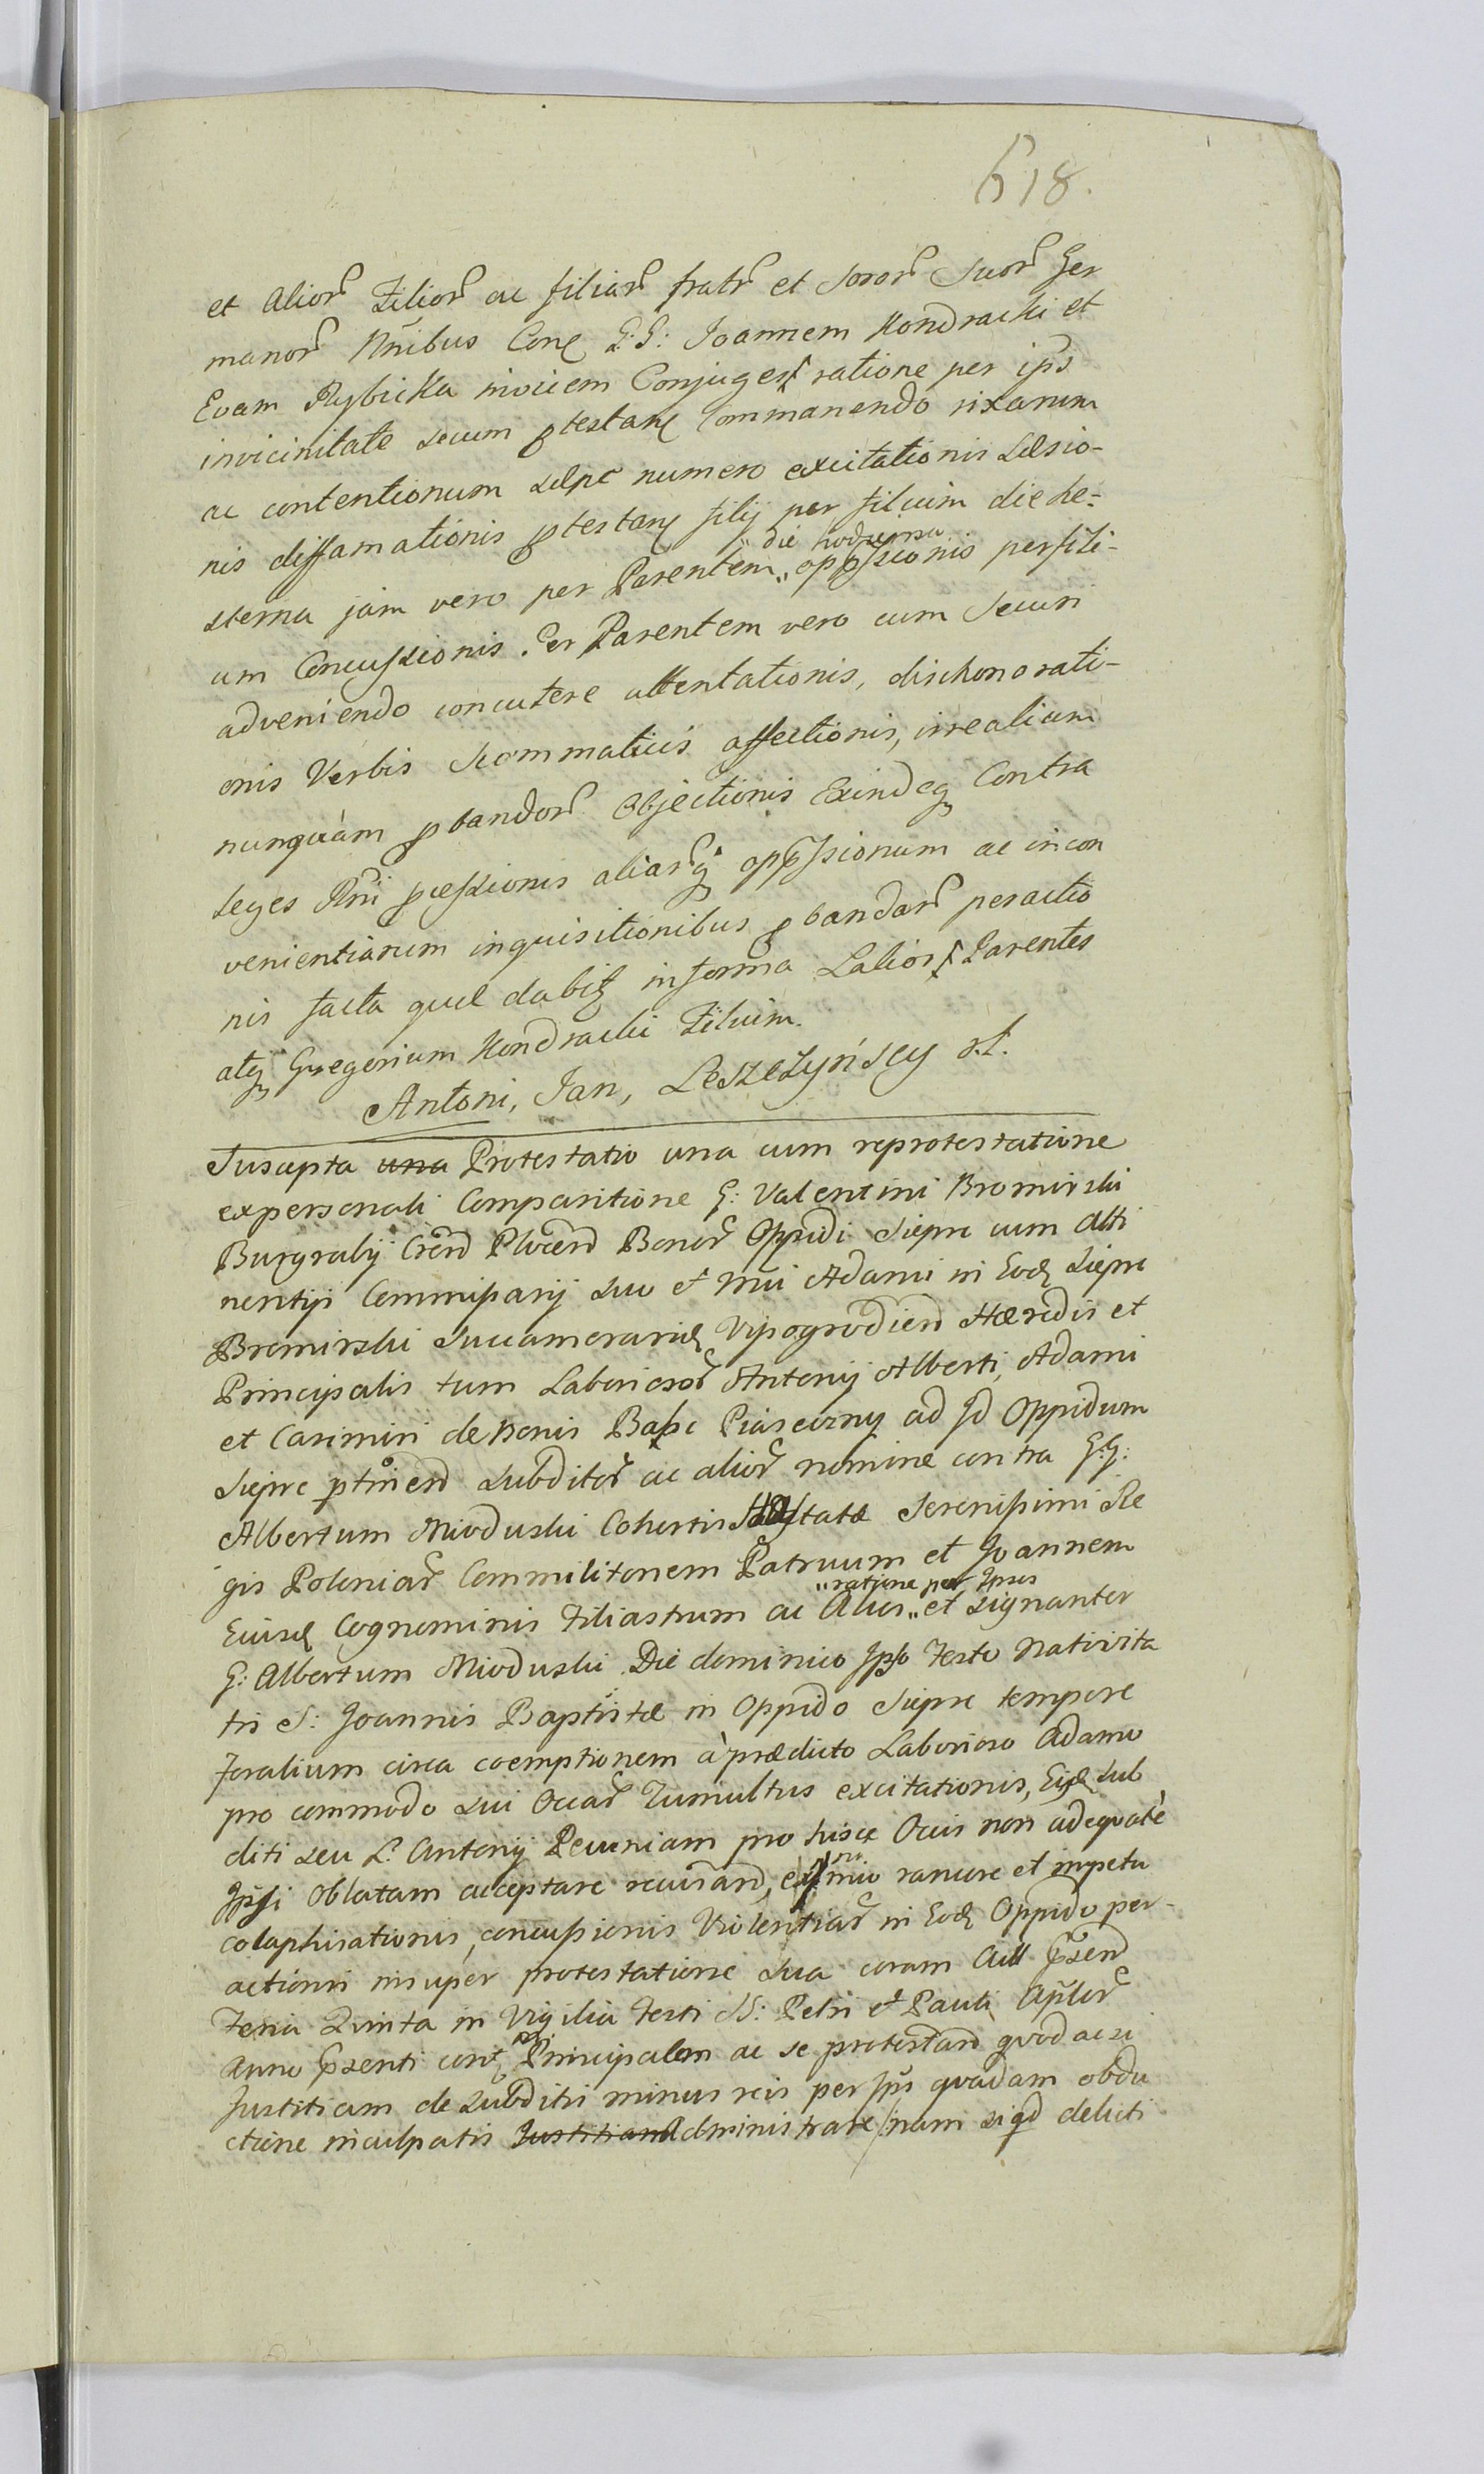 618.
et Alior Filior ac filiar fratr et Soror Suor Ger
manor Nnibus Cone G:G: Joannem Kondracki et
Evam Rybicka invicem Conjuges ratione per ips
invicinitate secum ptestane Commanendo rixarum
ac contentionum sæpe numero excitationis Læsio-
nis diffamationis ptestane filij per filium die he-
sterna jam vero per Parentem „ die hodierna „ oppssionis per fili-
um Concussionis. Per Parentem vero cum Securi
adveniendo concutere attentationis, dishonorati-
onis Verbis Scommaticis affectionis, irrealium
nunquam pbandor Objectionis Exindeq Contra
Leges Rni pcessionis aliarq oppssionum ac incon
venientiarum inquisitionibus pbandar peractio
nis facta quæ dabit in forma Labior Parentes
atq Gregorium Kondracki Filium.
Antoni, Jan, Leszczyńscy
Suscepta una Protestatio una cum reprotestatione
expersonali Comparitione G: Valentini Bromirski
Burgrabij Cren Plocen Bonor Oppidi Sieprc cum Atti
nentijs Commissarij suo et Mci Adami in Eod Sieprc
Bromirski Succamerarid Vyssogrodien Hæredis et
Principalis tum Laboriosor Antonij Alberti, Adami
et Casimiri de bonis Piaseczny ad Id Oppidum
Sieprc ptinen subditor ac alior nomine contra G:G:
Albertum Mioduski Cohortis Hastatæ Serenissimi Re
gis Poloniar Commilitonem Patruum et Joannem
Eiusd Cognominis Filiastrum ac Alios „ ratione per Ipsos „ et signanter
G: Albertum Mioduski Die dominico Ipso Festo Nativita
tis S: Joannis Baptistæ in Oppido Sieprc tempore
Foralium circa coemptionem à prædicto Laborioso Adamo
pro commodo sui Ocar Tumultus excitationis, Eius sub
diti seu L: Antonij Pecuniam pro hisce Ocis non adequatè
Ipsi Oblatam acceptare recusan, ex rancore et impetu
colaphisationis, concussionis Violentiar in Eod Oppido per-
actionis insuper protestatione sua coram Actt Præsen
Feria Quinta in Vigilia Festi SS: Petri et Pauli Aplor
Anno Præsenti cont Principalem ac se protestan quod acsi
Justitiam de subditis minus reis per Ips quadam obdu
ctione inculpatis Justitiam Administrare nam siqd delicti